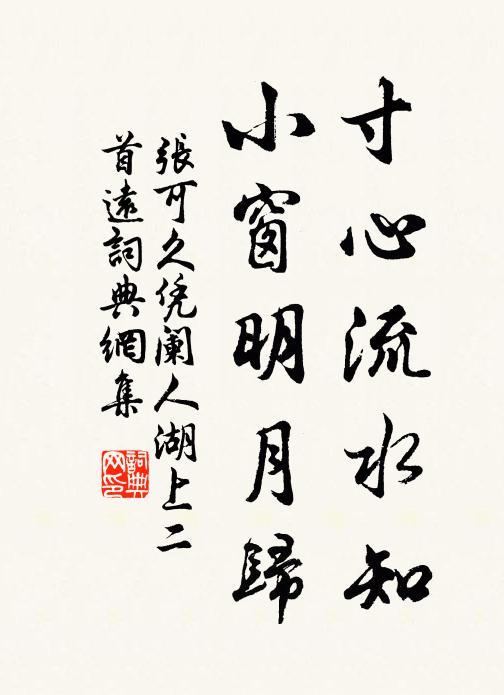 寸心流水知
小窗明月歸
張可久凭闌人湖上二
首遠詞典網集
詞典网印